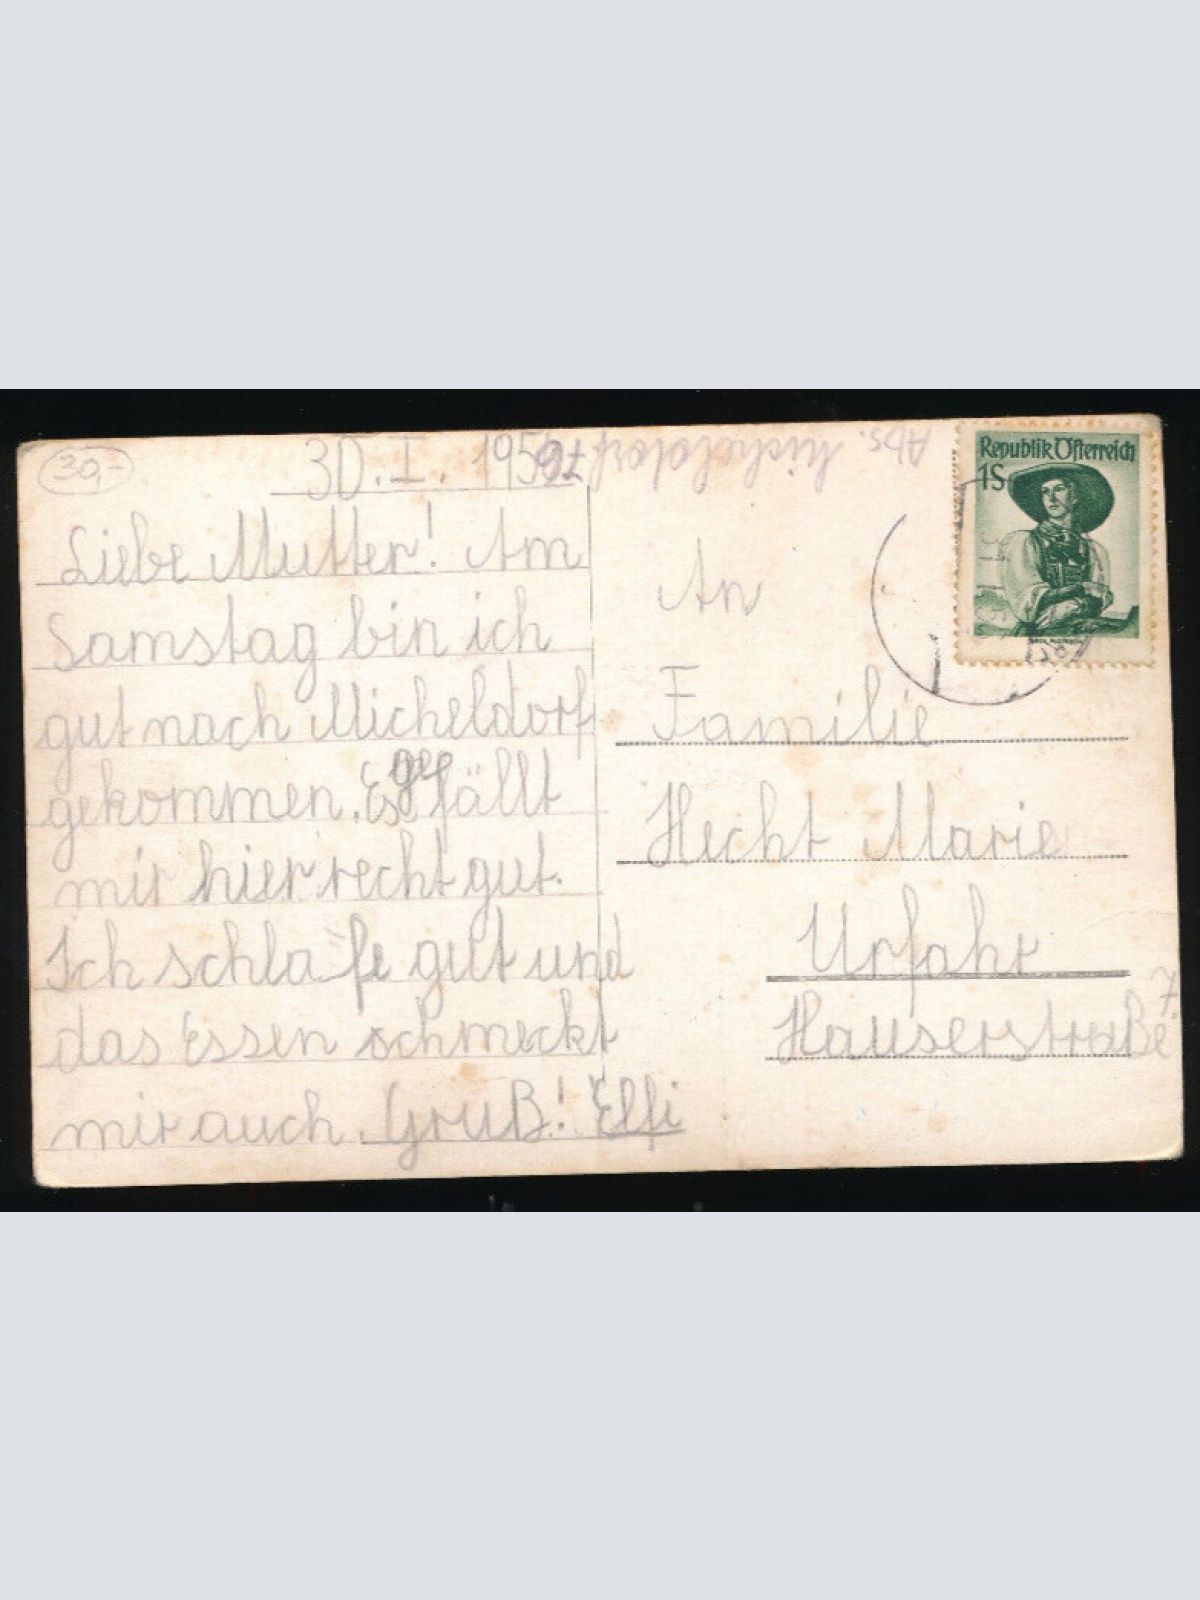 30,-
30. I. 195
Abs. Micheldorf 76
Republik Österreich
1S
Liebe Mutter! Am
Samstag bin ich
gut nach Micheldorf
gekommen. Es gefällt
mir hier recht gut.
Ich schlafe gut und
das Essen schmeckt
mir auch. Gruß! Elfi
An
Familie
Hecht Marie
Urfahr
Hauserstraße 7.